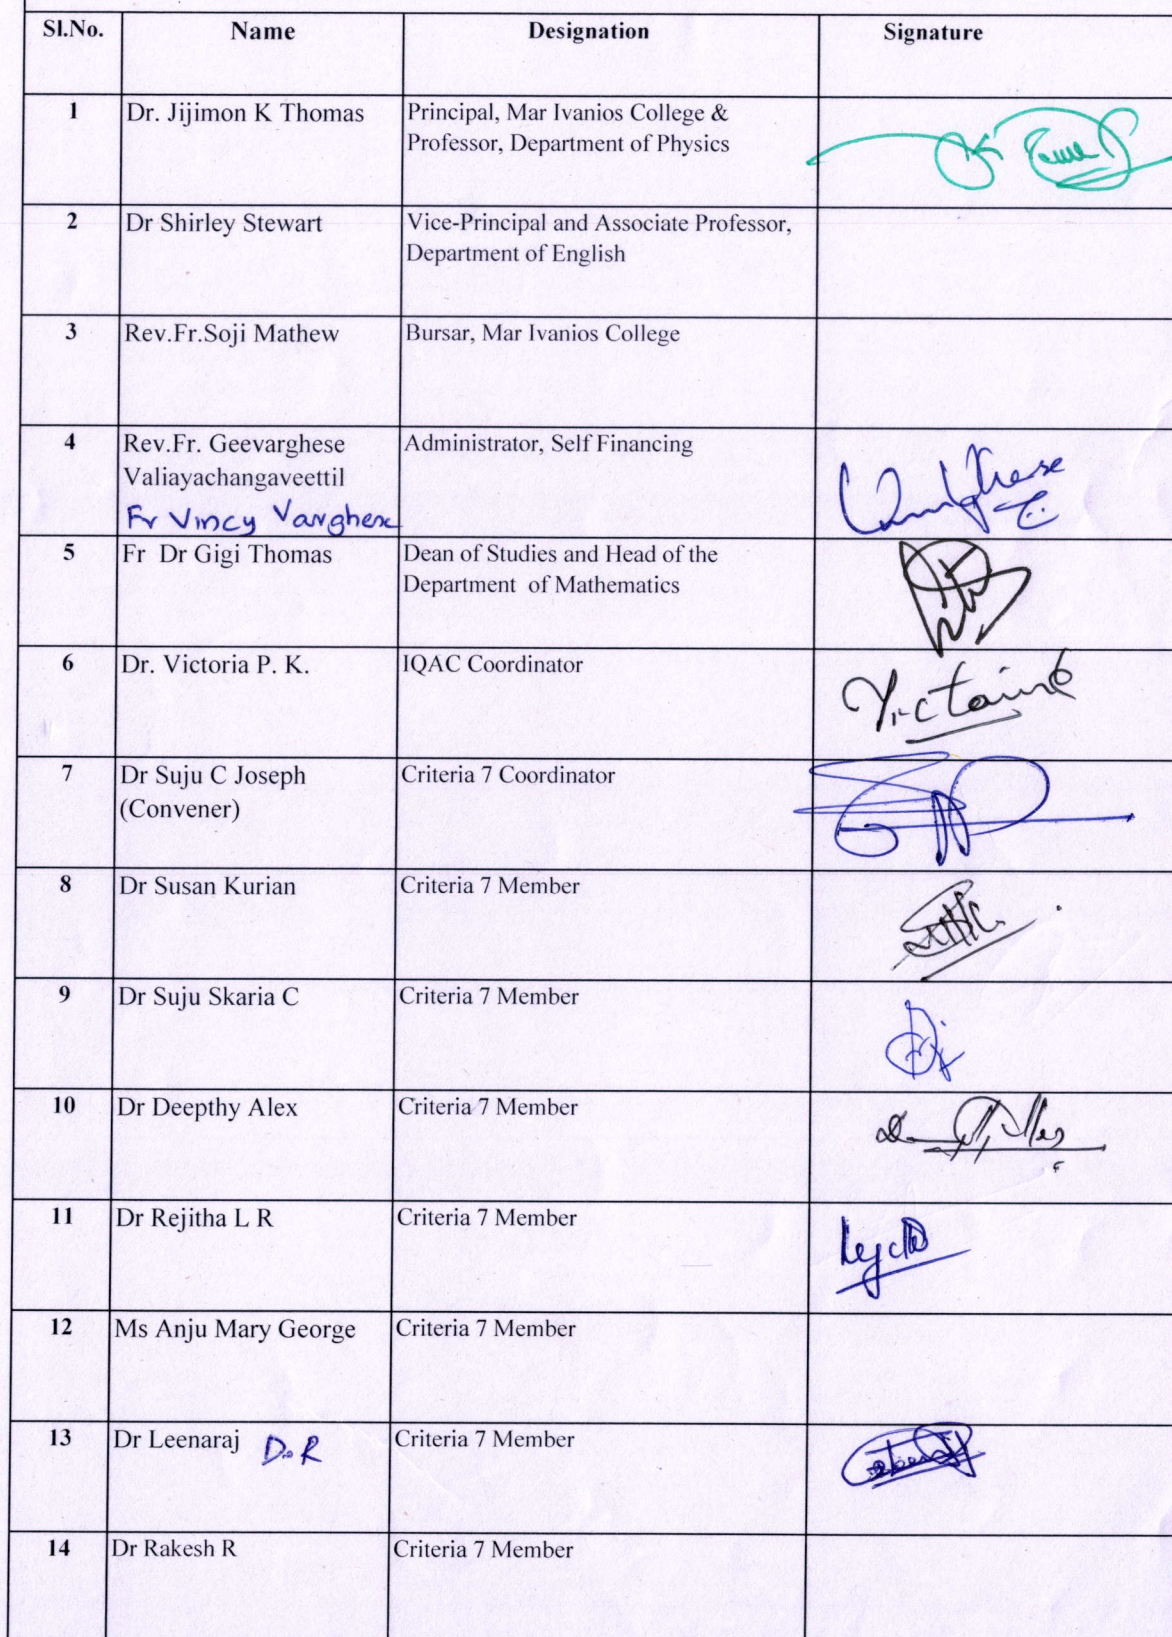 Sl.No. Name Designation Signature
1 Dr. Jijimon K Thomas Principal, Mar Ivanios College &
Professor, Department of Physics
2 Dr Shirley Stewart Vice-Principal and Associate Professor,
Department of English
3 Rev.Fr.Soji Mathew Bursar, Mar Ivanios College
4 Rev.Fr. Geevarghese Administrator, Self Financing
Valiayachangaveettil
Fr Vincy Varghese
5 Fr Dr Gigi Thomas Dean of Studies and Head of the
Department of Mathematics
6 Dr. Victoria P. K. IQAC Coordinator
7 Dr Suju C Joseph Criteria 7 Coordinator
(Convener)
8 Dr Susan Kurian Criteria 7 Member
9 Dr Suju Skaria C Criteria 7 Member
10 Dr Deepthy Alex Criteria 7 Member
11 Dr Rejitha L R Criteria 7 Member
12 Ms Anju Mary George Criteria 7 Member
13 Dr Leenaraj D.R Criteria 7 Member
14 Dr Rakesh R Criteria 7 Member